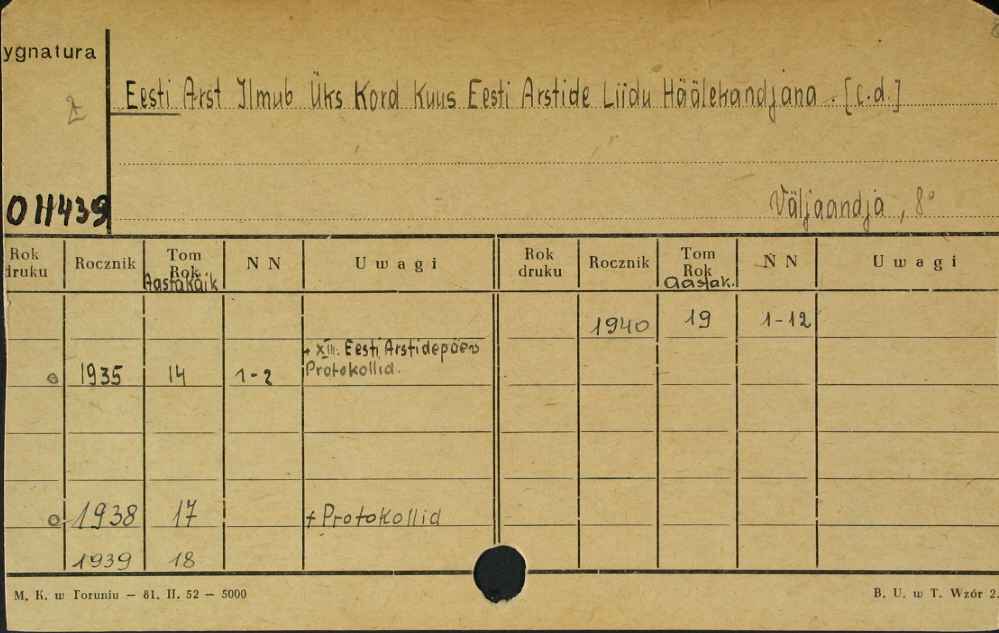 ygnatura
Eesti Arst Ilmub Üks Kord Kuus Eesti Arstide Liidu Häälekandjana. [c.d.]
OH439
Väljaandja, 8°
Rok druku Rocznik Tom Rok Aastakäik N N Uwagi Rok druku Rocznik Tom Rok Aastak. N N Uwagi
1940 19 1-12
+ XIII. Eesti Arstidepäev
1935 14 1-2 Protokollid.
1938 17 + Protokollid
1939 18
M. K. w Toruniu — 81. II. 52 — 5000 B. U. w T. Wzór 2.